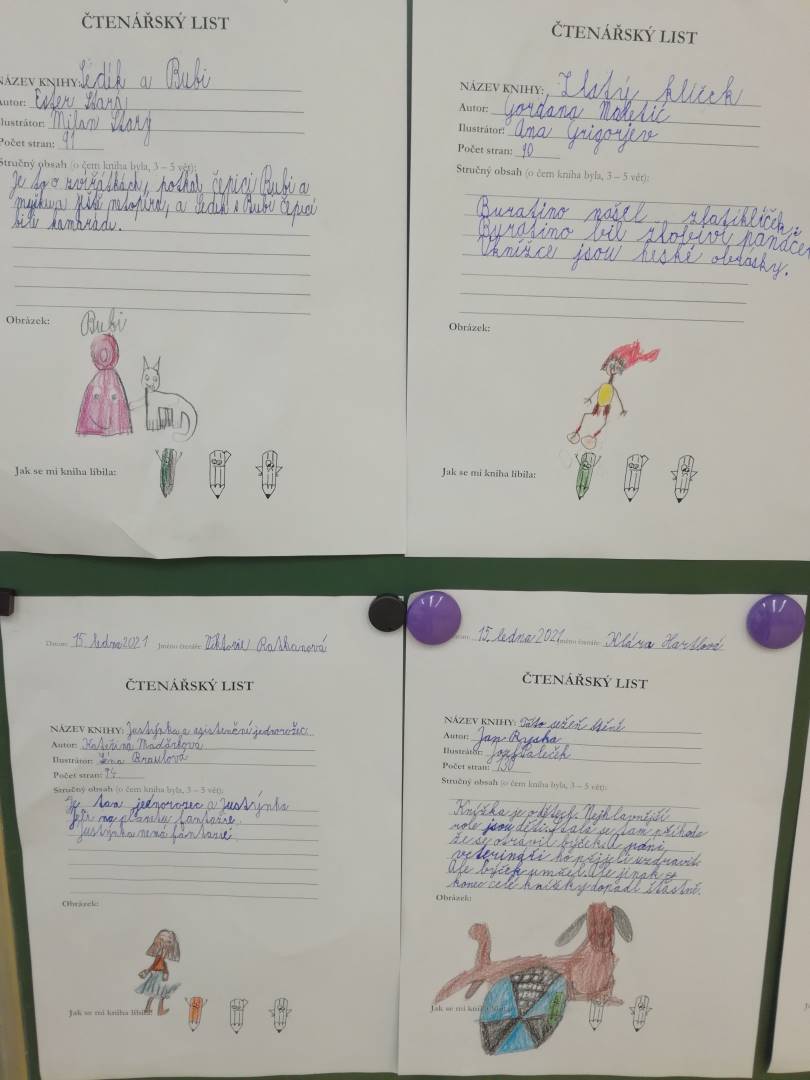 ČTENÁŘSKÝ LIST
NÁZEV KNIHY: Šedík a Bubi
Autor: Ester Stará
Ilustrátor: Milan Starý
Počet stran: 91
Stručný obsah (o čem kniha byla, 3 – 5 vět):
Je to o zvířátkách, potkal čepici Bubi a
myšku a ještě netopíra, a Šedík s Bubi čepicí
bili kamarádi.
Obrázek:
Bubi
Jak se mi kniha líbila:
ČTENÁŘSKÝ LIST
NÁZEV KNIHY: Zlatý klíček
Autor: Gordana Maletić
Ilustrátor: Ana Grigorjev
Počet stran: 90
Stručný obsah (o čem kniha byla, 3 – 5 vět):
Buratino našel zlatiklíček.
Buratino bil zlobiví panáče
V knížce jsou heské obrásky.
Obrázek:
Jak se mi kniha líbila:
Datum: 15. ledna 2021 Jméno čtenáře: Viktorie
ČTENÁŘSKÝ LIST
NÁZEV KNIHY: Justýnka a asistenční jednorožec
Autor: Kateřina Maďarkova
Ilustrátor: Braulová
Počet stran: 94
Stručný obsah (o čem kniha byla, 3 – 5 vět):
Je tam jednorozec a Justýnka
na planetu fantazie.
Justýnka nemá fantazii
Obrázek:
Jak se mi kniha líbila:
15. ledna 2021 Jméno čtenáře: Klára Hartlová
ČTENÁŘSKÝ LIST
NÁZEV KNIHY: Táto sežeň štěně
Autor: Jan Ryska
Ilustrátor: Jozef Paleček
Počet stran: 130
Stručný obsah (o čem kniha byla, 3 – 5 vět):
Knížka je o dětech. Nejhlavnější
role jsou děti. Stala se tam příhoda
že se otrávil býček a páni
veterináři ho přijeli uzdravit.
Ale býček umřel. Ale jinak
konec celé knížky dopadl štastně.
Obrázek:
Jak se mi kniha líbila: